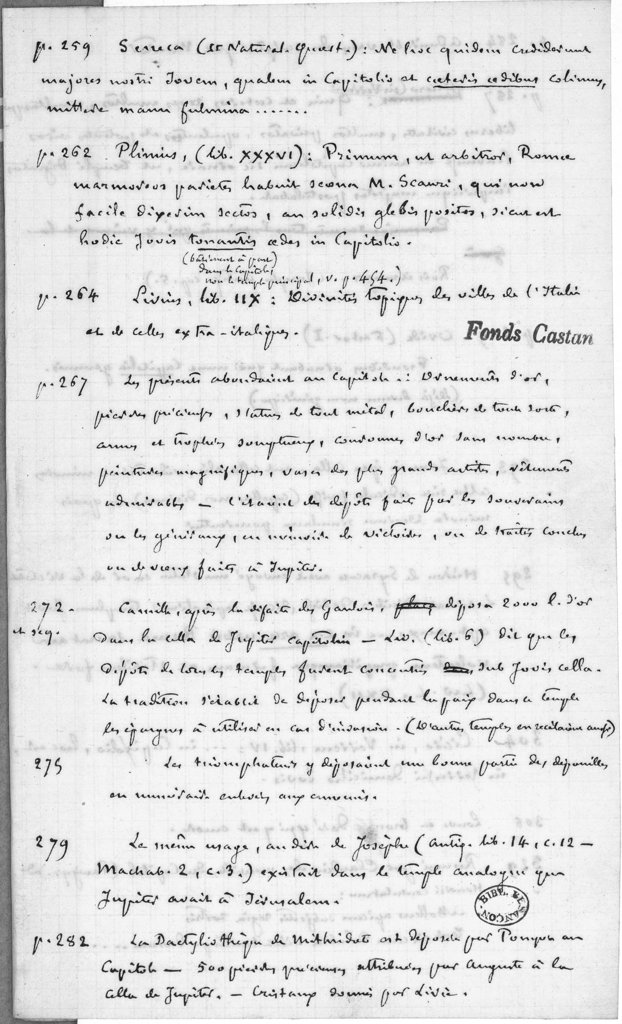 p. 259 Seneca (II Natural. Quæst.) : Ne hoc quidem crediderunt
majores nostri Jovem, qualem in Capitolio et cæteris ædibus colimus,
mittere manu fulmina .......
p. 262 Plinius, (lib. XXXVI) : Primum, ut arbitror, Romæ
marmoreos parietes habuit scena M. Scauri, qui non
facile dixerim sectos, an solidis glebis positos, sicut est
hodie Jovis tonantis ædes in Capitolio.
(bâtiment à part)
dans le Capitole,
non le temple principal, v. p. 454.)
p. 264 Livius, lib. IIX : Divinités topiques des villes de l'Italie
et de celles extra-italiques.
Fonds Castan
p. 267 Les présents abondaient au Capitole : Ornements d'or,
pierres précieuses, statues de tout métal, boucliers de toute sorte,
armes et trophées somptueux, couronnes d'or sans nombre,
peintures magnifiques, vases des plus grands artistes, vêtements
admirables — c'étaient des dépôts faits par les souverains
ou les généraux, en mémoire de victoires, ou de traités conclus
ou de vœux faits à Jupiter.
272. Camille, après la défaite des Gaulois, déposa 2000 l. d'or
et seq. dans la cella de Jupiter capitolin — Liv. (lib. 6) dit que les
dépôts de tous les temples furent concentrés sub Jovis cella.
La tradition s'établit de déposer pendant la paix dans ce temple
les épargnes à utiliser en cas d'invasion. (D'autres temples en recélaient aussi)
275 Les triomphateurs y déposaient une bonne partie des dépouilles
en numéraire enlevées aux ennemis.
279 Le même usage, au dire de Josèphe (Antiq. lib. 14, c. 12 —
Machab. 2, c. 3.) existait dans le temple analogue que
Jupiter avait à Jérusalem.
BIBL. BESANÇON
p. 282 La Dactyliothèque de Mithridate est déposée par Pompée au
Capitole — 500 pierres précieuses attribuées par Auguste à la
cella de Jupiter. — Cristaux donnés par Livie.